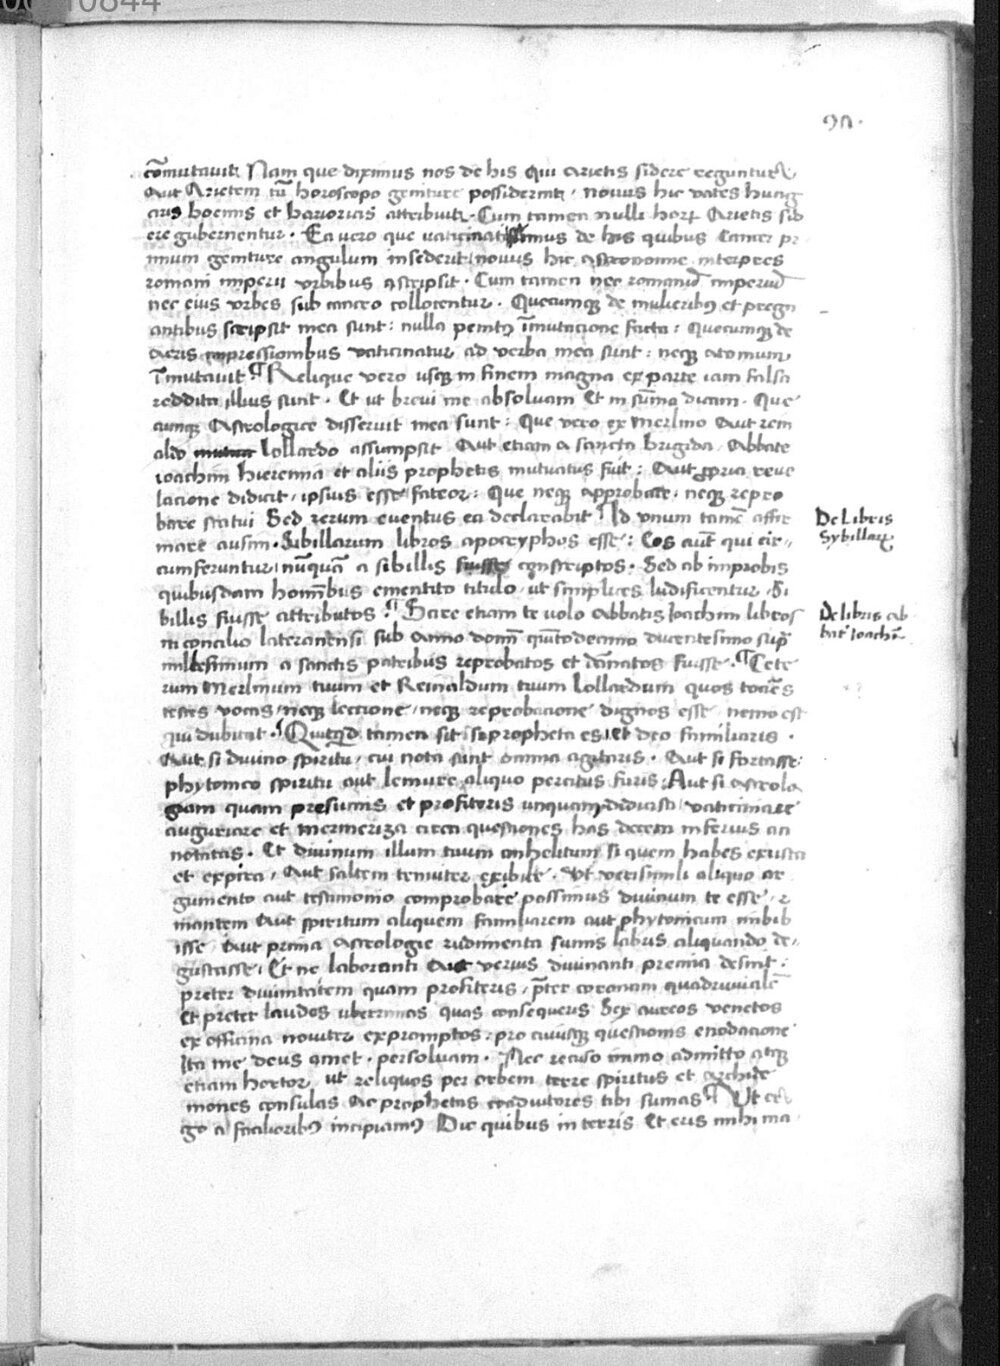 cõmutavit. Nam que diximus nos de his qui Arietis sidere reguntur
Aut Arietem tũ horoscopo geniture possiderint, novus hic vates hung
aris boemis et bavoricis attribuit. Cum tamen nulli horꝝ Arietis sid
ere gubernentur. Ea vero que vaticinati sumus de his quibus Cancer pr
imum geniture angulum insederit, novus hic astronomie interpres
romani imperii urbibus ascripsit. Cum tamen nec romanũ imperiũ
nec eius urbes sub cancro collocentur. Quecumqꝫ de mulieribꝰ et pregn
antibus scripsit mea sunt: nulla penitꝰ ĩmutacione facta: Quecumqꝫ de
aeris impressionibus vaticinatur ad verba mea sunt: neqꝫ atomum
ĩmutavit. Relique vero usqꝫ in finem magna ex parte iam falsa
reddita illius sunt. Et ut brevi me absolvam Et in sũma dicam. Que
cunqꝫ Astrologice disseruit mea sunt: Que vero ex Merlino Aut rein
aldo lollardo assumpsit Aut etiam a sancta brigida, Abbate
ioachim hieremia et aliis prophetis mutuatus fuit: Aut ꝓpria reve
lacione didicit, ipsius esse fateor: Que neqꝫ approbare, neqꝫ repro
bare statui Sed rerum eventus ea declarabit. Id unum tamẽ affir
mare ausim. Sibillarum libros apocryphos esse: Eos aut̃ qui cir
cumferuntur, nũquã a sibillis fuisse conscriptos. Sed ab improbis
quibusdam hominibus ementito titulo, ut simplices ludificentur, Si
billis fuisse attributos. Scire etiam te volo Abbatis Ioachim libros
in concilio lateranensi sub Anno domĩ quĩtodecimo ducentesimo supͣ
millesimum a sanctis patribus reprobatos et dãnatos fuisse. Cete
rum Merlinum tuum et Reinaldum tuum lollardum quos tociẽs
testes vocas, neqꝫ leccione, neqꝫ reprobacione dignos esse nemo est
qui dubitat. Quicqͥd tamen sit, si propheta es, et deo familiaris.
Aut si divino spiritu, cui nota sunt omnia agitaris. Aut si fortasse
phytonico spiritu aut lemure aliquo percitus furis: Aut si astrolo
giam quam presumis et profiteris unquam didicisti vaticinare
auguriare et circa questiones has decem inferius an
notatas. Et divinum illum tuum anhelitum si quem habes exuscita
et expira, Aut saltem tenuiter exibile. Ut verisimili aliquo ar
gumento aut testimonio comprobare possimus divinum te esse,
Aut spiritum aliquem familiarem aut phytonicum imbib
isse, Aut prima Astrologie rudimenta summis labiis aliquando de
gustasse. Et ne laboranti Aut verius divinanti premia desint:
preter divinitatem quam profiteris, p̃ter coronam quadruvialẽ
Et preter laudes uberrimas quas consequeris Sex aureos venetos
ex officina noviter expromptos, pro cuiusqꝫ questionis enodacione
Ita me deus amet, persolvam. Nec recuso immo admitto atqꝫ
etiam hortor, ut reliquos per orbem terre spiritus et archide
mones consulas Ac prophetas coadiutores tibi sumas. Ut er
go a facilioribꝰ incipiamꝰ Dic quibus in terris Et eris mihi ma
De libris
Sybillaꝝ
De libris ab
bat̃ ioachĩ